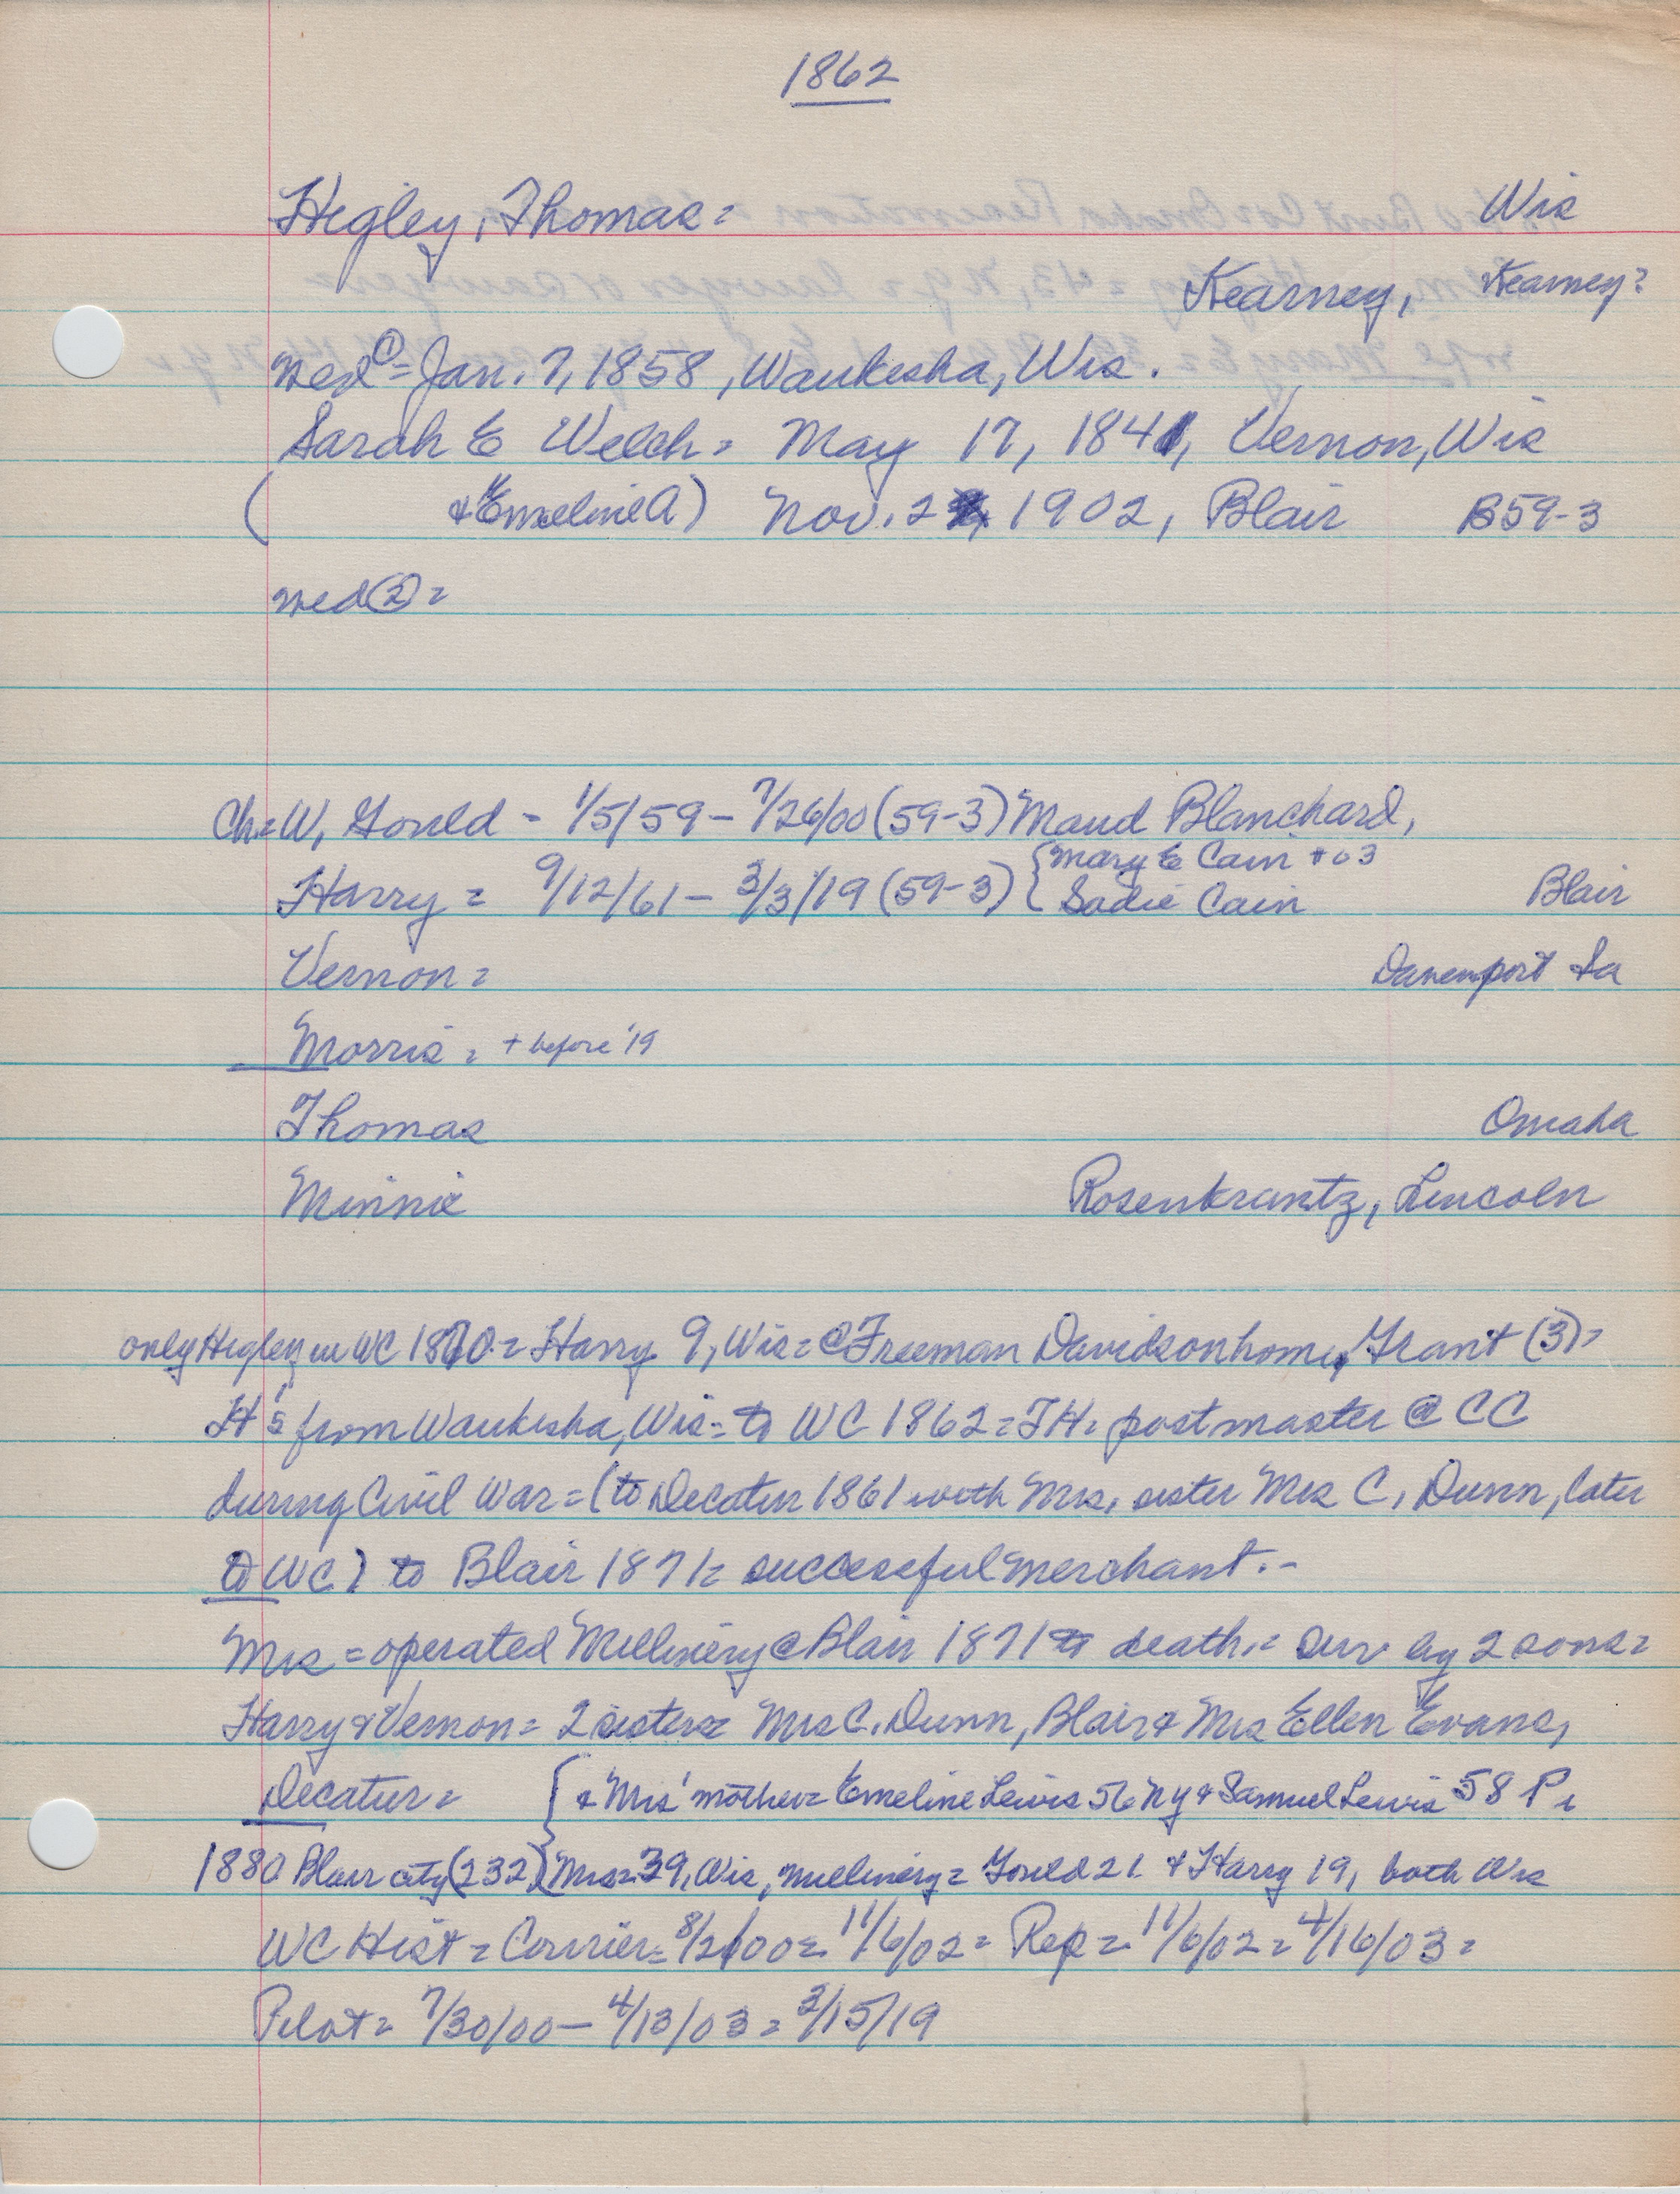 1862
Higley, Thomas = Wis
Kearney, Kearney?
Wed ① = Jan. 7, 1858, Waukesha, Wis.
Sarah E Welch = May 17, 1841, Vernon, Wis
( & Emeline A) Nov. 2 1902, Blair B59-3
Wed ② =
Ch = W, Gould - 1/5/59 - 7/26/00 (59-3) Maud Blanchard,
Harry = 9/12/61 - 3/3/19 (59-3) { Mary E Cain + 03
Sadie Cain Blair
Vernon = Davenport Ia
Morris = + before '19
Thomas Omaha
Minnie Rosenkrantz, Lincoln
only Higley in WC 1870 = Harry 9, Wis = @ Freeman Davidson home, Grant (3) =
H's from Waukesha, Wis = to WC 1862 = TH = postmaster @ CC
during Civil War = (to Decatur 1861 with Mrs, sister Mrs C. Dunn, later
to WC) to Blair 1871 = successful merchant. -
Mrs = operated Millinery @ Blair 1871 to death. = surv by 2 sons =
Harry & Vernon = 2 sisters = Mrs C. Dunn, Blair & Mrs Ellen Evans,
Decatur = { & Mrs' mother = Emeline Lewis 56 NY & Samuel Lewis 58
1880 Blair city (232) Mrs = 39, Wis, millinery = Gould 21 & Harry 19, both Wis
WC Hist = Courier = 8/2/00 = 11/6/02 = Rep = 11/6/02 = 4/16/03 =
Pilot = 7/30/00 - 4/13/03 = 3/15/19